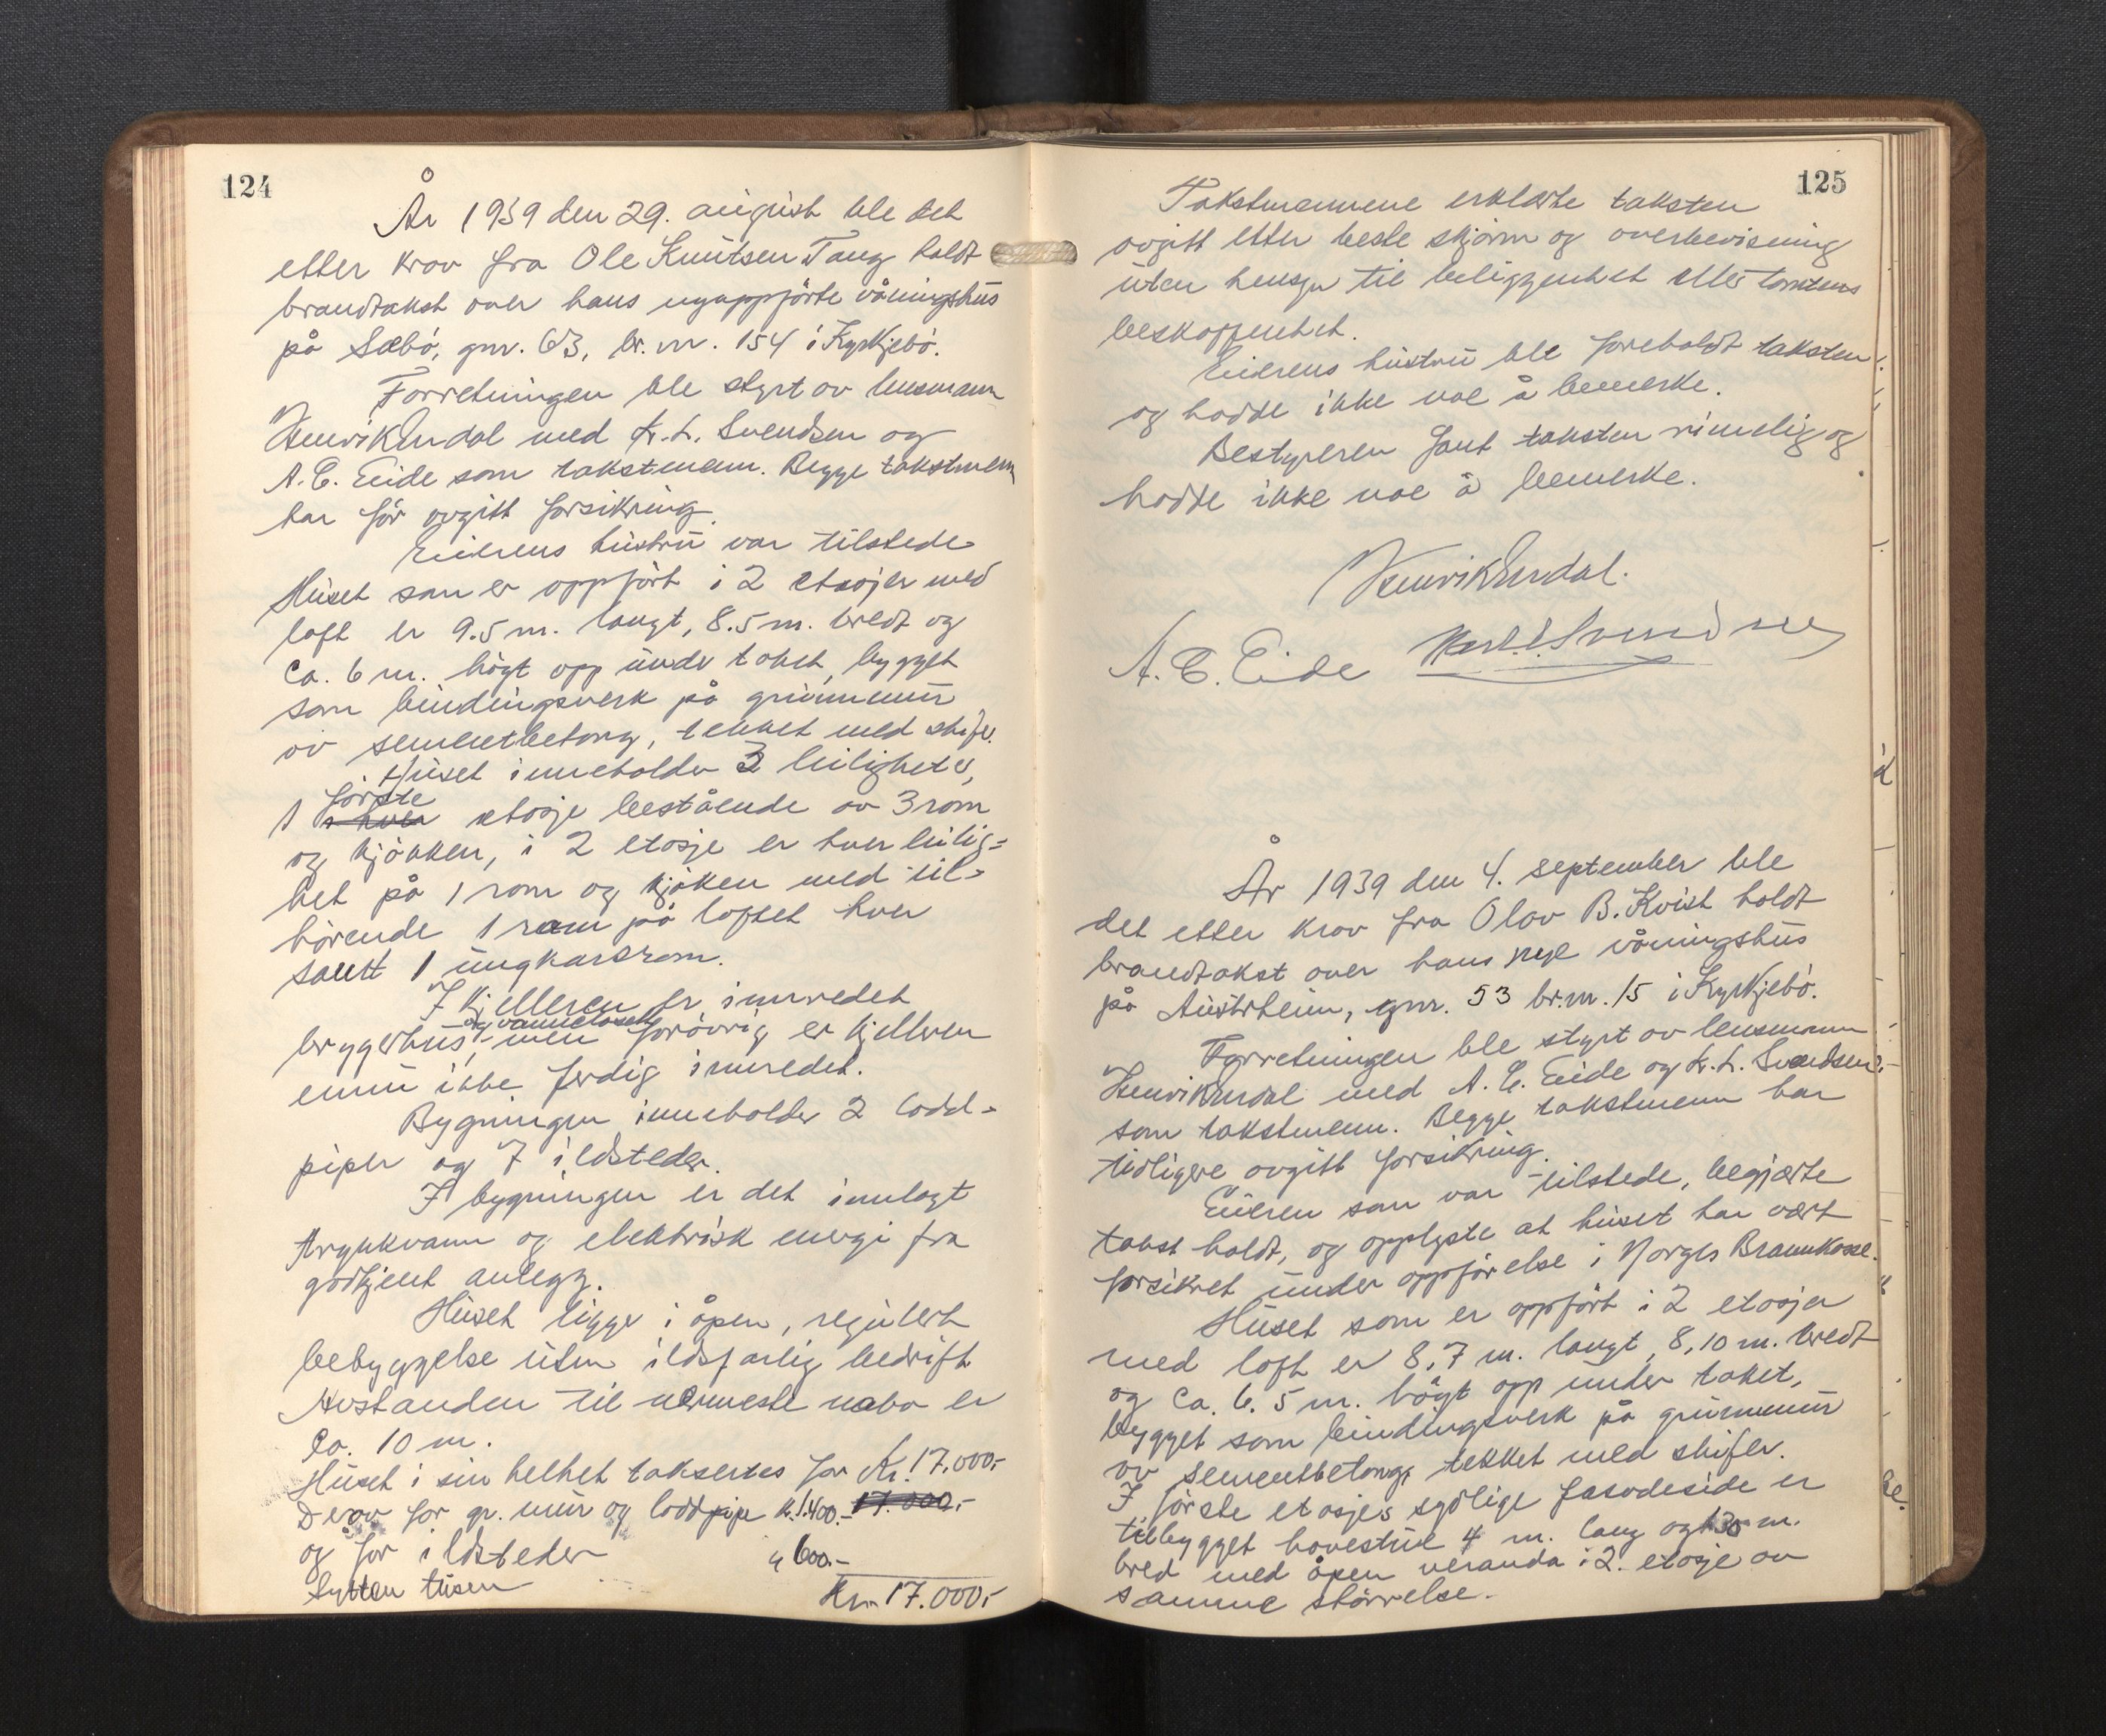 124
År 1939 den 29. august ble det
etter krav fra Ole Knutsen Taug holdt
brandtakst over hans nyoppförte våningshus
på Sæbö, gnr. 63, br.nr. 154 i Kyrkjebö.
Forretningen ble styrt av lensmann
Henrik Endal med K. L. Svendsen og
A. E. Eide som takstmenn. Begge takstmenn
har för avgitt forsikring.
Eierens hustru var tilstede
Huset som er oppfört i 2 etasjer med
loft er 9.5 m. langt, 8.5 m. bredt og
ca. 6 m. högt opp under taket, bygget
som bindingsverk på grunnmur
av sementbetong, tekket med skifer.
Huset inneholder 3 leiligheter,
første
1 i hver etasje bestående av 3 rom
og kjökken, i 2 etasje er hver leilig-
het på 1 rom og kjöken med til-
hörende 1 rom på loftet hver
samt 1 ungkarsrom.
I kjelleren er innredet
og vannclosett
bryggerhus, men forövrig er kjelleren
ennu ikke ferdig innredet.
Bygningen inneholder 2 lodd-
piper og 7 ildsteder.
I bygningen er det innlagt
trykkvann og elektrisk energi fra
godkjent anlegg.
Huset ligger i åpen, regulert
bebyggelse uten ildsfarlig bedrift
Avstanden til nærmeste nabo er
ca. 10 m.
Huset i sin helhet takseres for Kr. 17.000,-
Derav for gr. mur og loddpipe k. 1.400.- 17.000,-
og for ildsteder " 600.-
Sytten tusen Kr. 17.000,-
125
Takstmennene erklærte taksten
avgitt etter beste skjönn og overbevisning
uten hensyn til beliggenhet eller tomtens
beskaffenhet.
Eierens hustru ble foreholdt taksten
og hadde ikke noe å bemerke.
Bestyreren fant taksten rimelig og
hadde ikke noe å bemerke.
Henrik Endal.
A. E. Eide Karl L. Svendsen
År 1939 den 4. september ble
det etter krav fra Olav B. Kvist holdt
brandtakst over hans nye våningshus
på Austrheim, gnr. 53 br.nr. 15 i Kyrkjebö.
Forretningen ble styrt av lensmann
Henrik Endal med A. E. Eide og K. L. Svendsen
som takstmenn. Begge takstmenn har
tidligere avgitt forsikring.
Eieren som var tilstede, begjærte
takst holdt, og opplyste at huset har vært
forsikret under oppförelse i Norges Brannkasse.
Huset som er oppfört i 2 etasjer
med loft er 8,7 m. langt, 8,10 m. bredt
og ca. 6.5 m. högt opp under taket,
bygget som bindingsverk på grunnmur
av sementbetong, tekket med skifer.
I förste etasjes sydlige fasadeside er
tilbygget havestue 4 m. lang og 130 m.
bred med åpen veranda i 2. etasje av
samme störrelse.